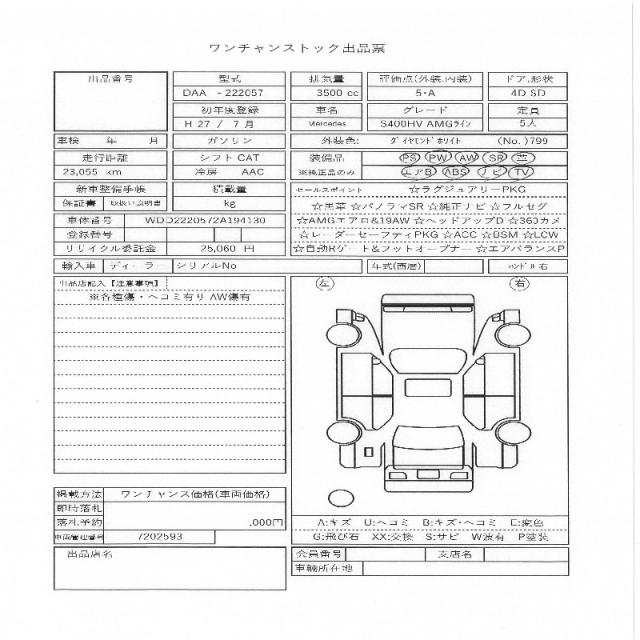 ワンチャンストック出品票
出品番号 型式 排気量 評価点(外装,内装) ドア,形状
DAA -222057 3500 cc 5・A 4D SD
初年度登録 車名 グレード 定員
H 27 / 7 月 Mercedes S400HV AMGライン 5人
車検 年 月 ガソリン 外装色: ダイヤモンドホワイト (No.)799
走行距離 シフト CAT 装備品 PS PW AW SR 革
23,055 km 冷房 AAC ※純正品のみ エアB ABS ナビ TV
新車整備手帳 積載量 セールスポイント ☆ラグジュアリーPKG
保証書 取扱い説明書 kg ☆黒革 ☆パノラマSR ☆純正ナビ ☆フルセグ
車体番号 WDD2220572A194130 ☆AMGエアロ&19AW ☆ヘッドアップD ☆360カメ
登録番号 ☆レーダーセーフティPKG ☆ACC ☆BSM ☆LCW
リサイクル委託金 25,060 円 ☆自動Rゲート&フットオープナー ☆エアバランスP
輸入車 ディーラー シリアルNo 年式(西暦) ハンドル 右
出品店記入【注意事項】 左 右
※各種傷・ヘコミ有り AW傷有
掲載方法 ワンチャンス価格(車両価格)
即時落札
落札予約 ,000円
車両管理番号 7202593
A:キズ U:ヘコミ B:キズ・ヘコミ C:変色
G:飛び石 XX:交換 S:サビ W波有 P塗装
出品店名 会員番号 支店名
車輌所在地